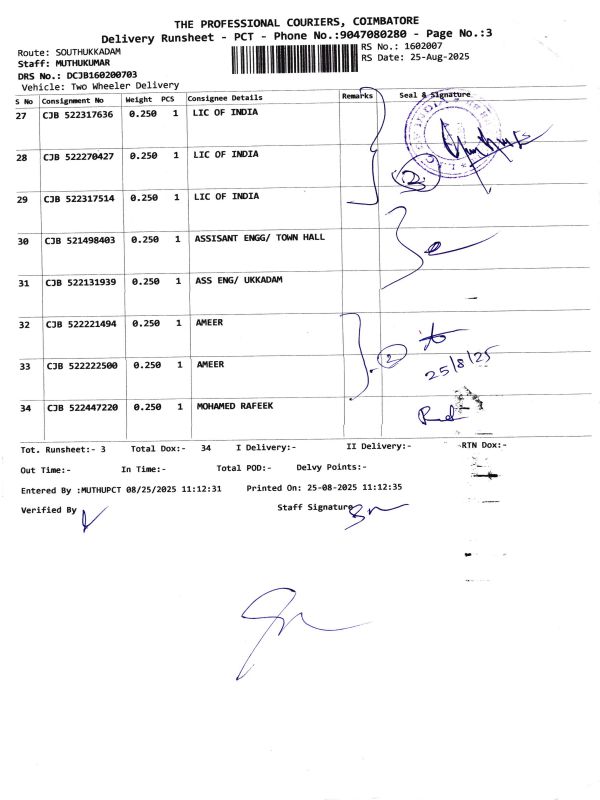 THE PROFESSIONAL COURIERS, COIMBATORE
Delivery Runsheet - PCT - Phone No.:9047080280 - Page No.:3
Route: SOUTHUKKADAM
RS No.: 1602007
Staff: MUTHUKUMAR
RS Date: 25-Aug-2025
DRS No.: DCJB160200703
Vehicle: Two Wheeler Delivery
S No Consignment No Weight PCS Consignee Details Remarks Seal & Signature
27 CJB 522317636 0.250 1 LIC OF INDIA
28 CJB 522270427 0.250 1 LIC OF INDIA
29 CJB 522317514 0.250 1 LIC OF INDIA
30 CJB 521498403 0.250 1 ASSISANT ENGG/ TOWN HALL
31 CJB 522131939 0.250 1 ASS ENG/ UKKADAM
32 CJB 522221494 0.250 1 AMEER
33 CJB 522222500 0.250 1 AMEER
2
25/8/25
34 CJB 522447220 0.250 1 MOHAMED RAFEEK
Tot. Runsheet:- 3 Total Dox:- 34 I Delivery:- II Delivery:- RTN Dox:-
Out Time:- In Time:- Total POD:- Delvy Points:-
Entered By :MUTHUPCT 08/25/2025 11:12:31 Printed On: 25-08-2025 11:12:35
Verified By Staff Signature